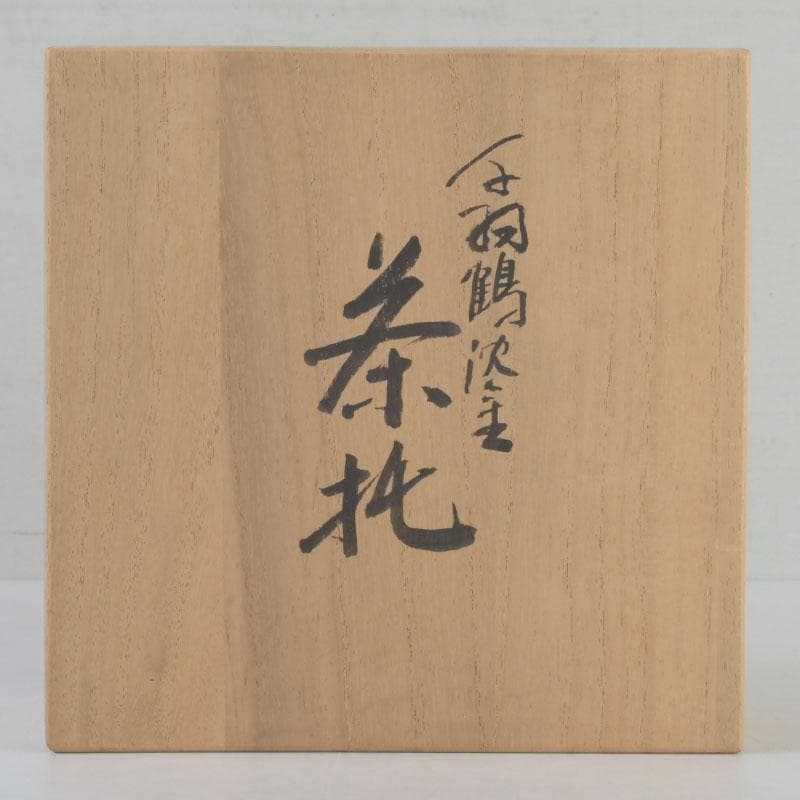 千羽鶴沈金
茶托